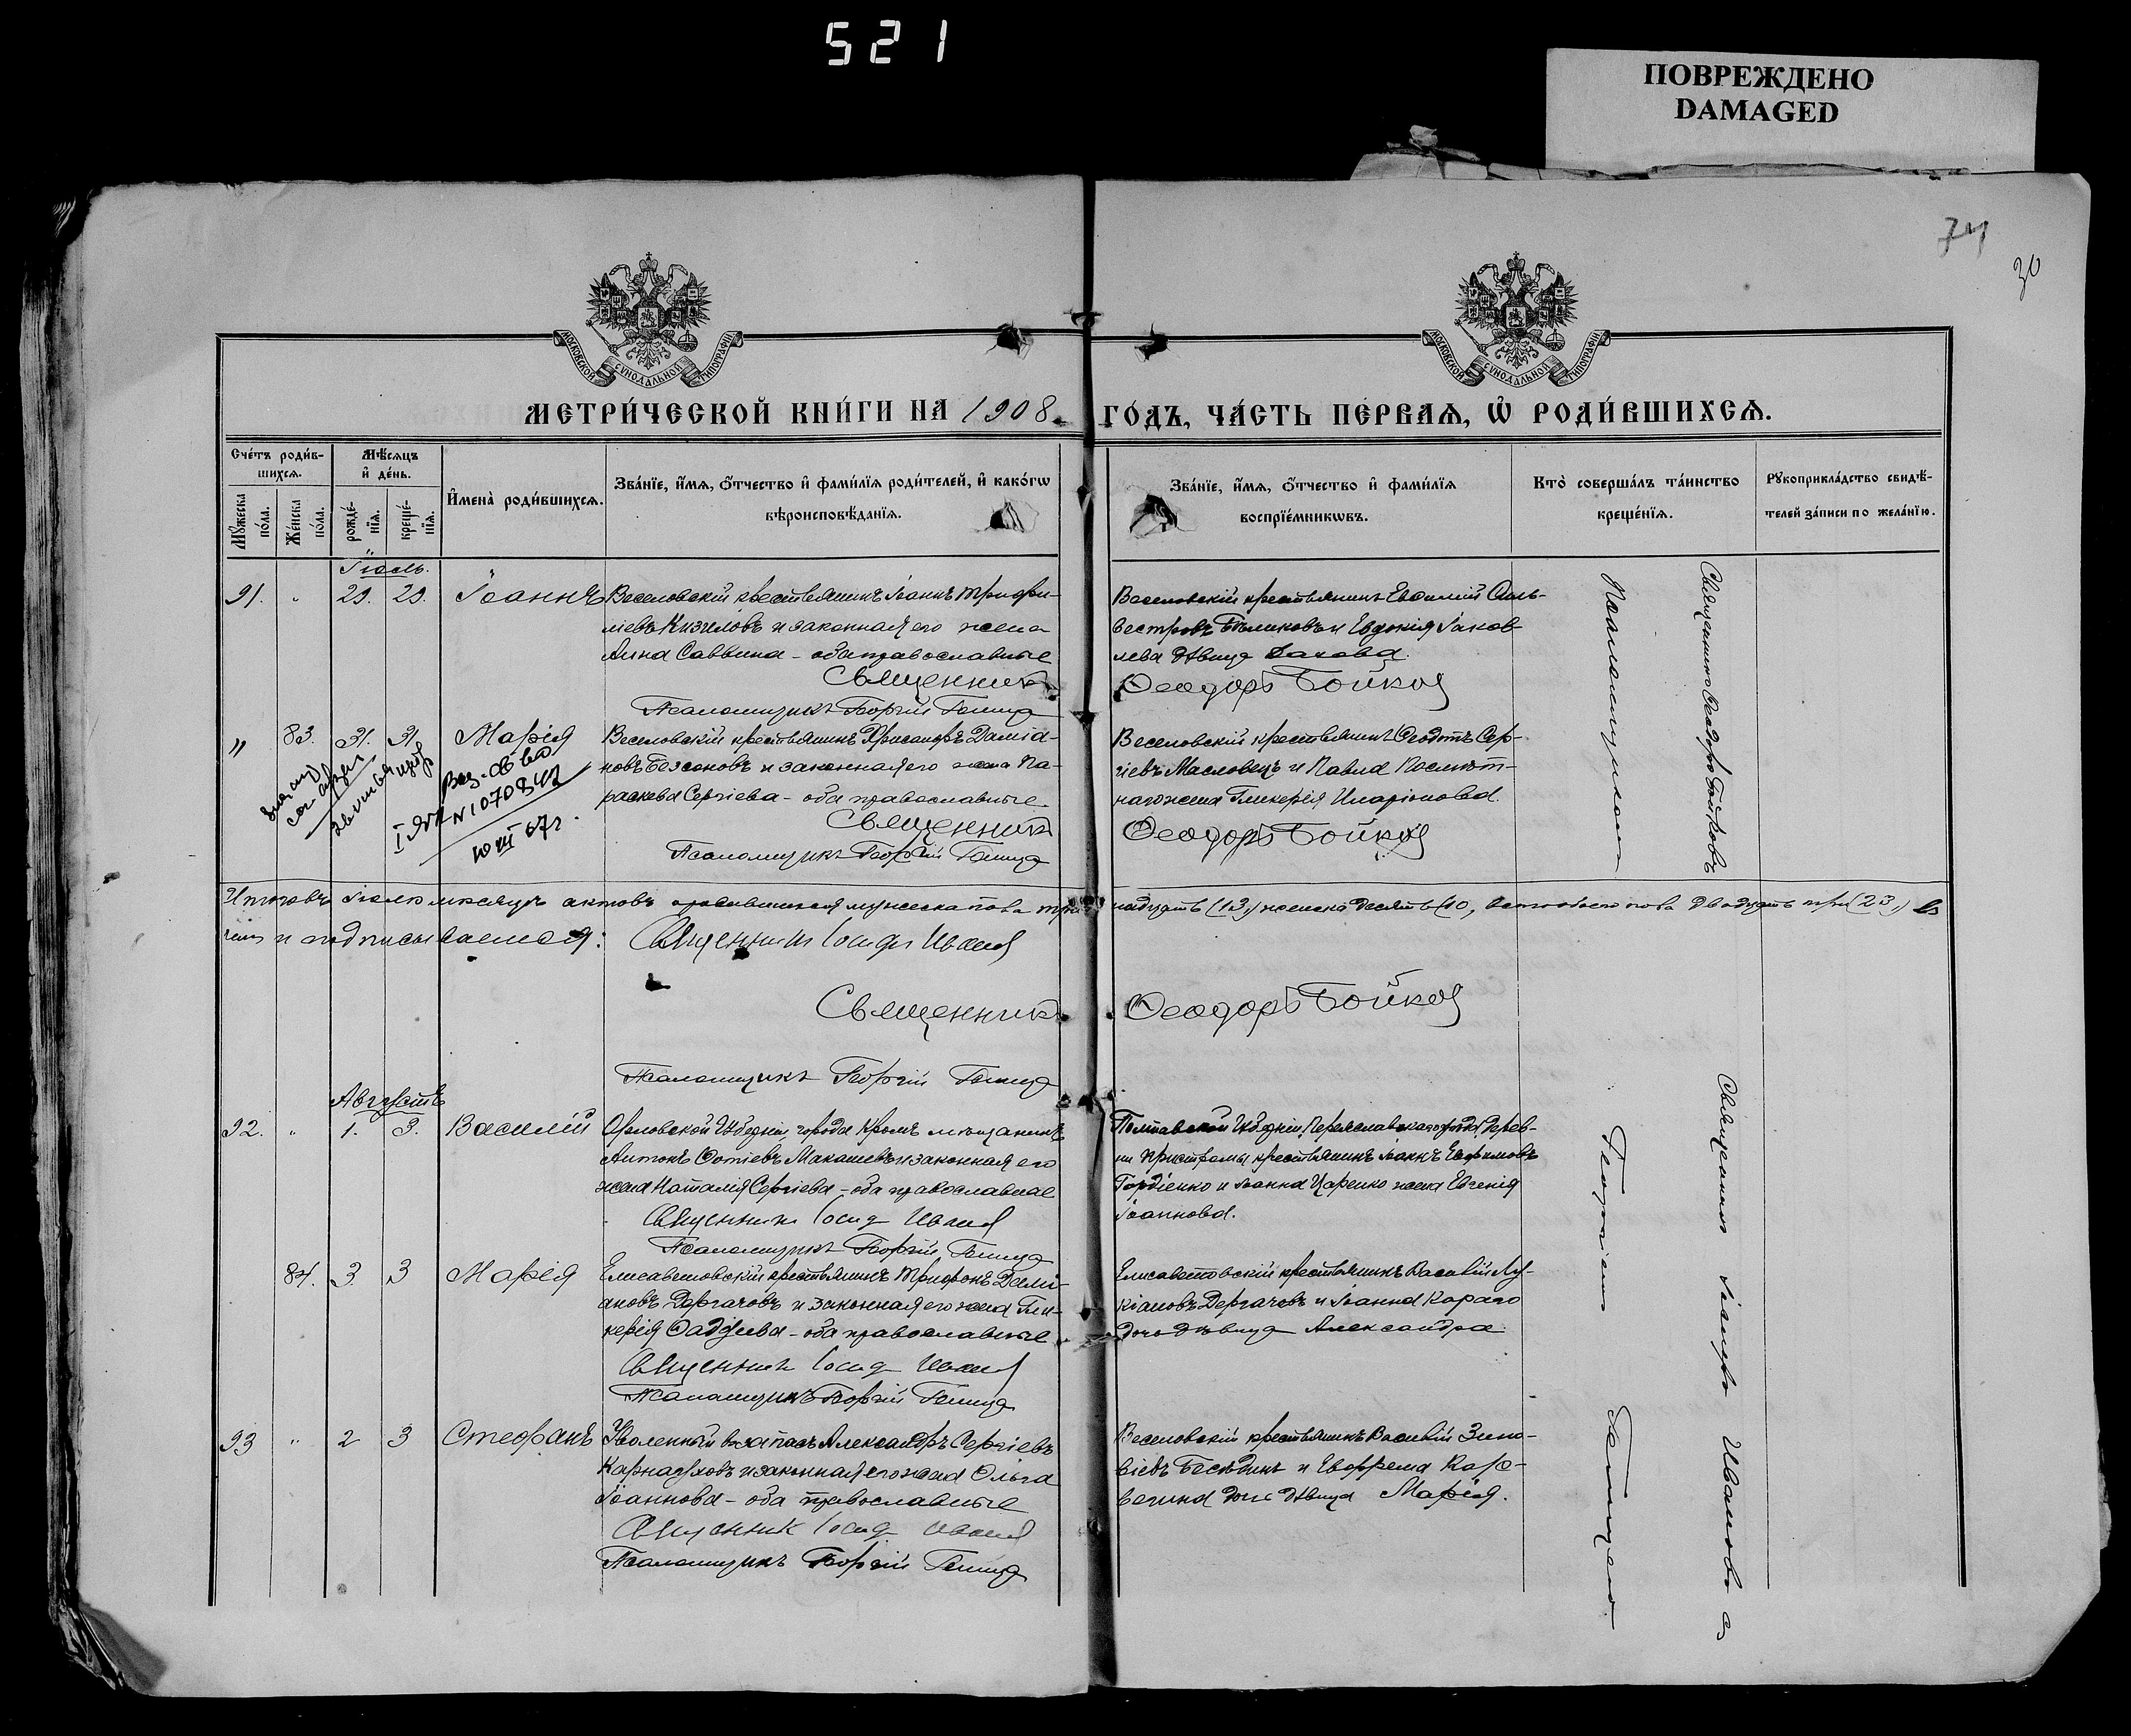 521
ПОВРЕЖДЕНО
DAMAGED
74
30
МОСКОВСКОЙ СѴНОДАЛЬНОЙ ТИПОГРАФІИ
МОСКОВСКОЙ СѴНОДАЛЬНОЙ ТИПОГРАФІИ
МЕТРИ́ЧЕСКОЙ КНИ́ГИ НА 1908
ГО́ДЪ, ЧА́СТЬ ПЕ́РВАѦ, Ѡ҆ РОДИ́ВШИХСѦ.
Сче́тъ роди́в-
шихсѧ.
Мꙋ́жеска по́ла.
Же́нска по́ла.
Мѣ́сѧцъ
и҆ де́нь.
рожде́-
нїѧ.
креще́-
нїѧ.
И҆мена̀ роди́вшихсѧ.
Зва́нїе, и҆́мѧ, ѻ҆́тчество и҆ фами́лїѧ роди́телей, и҆ како́гѡ
вѣроисповѣ́данїѧ.
Зва́нїе, и҆́мѧ, ѻ҆́тчество и҆ фами́лїѧ
воспрїе́мникѡвъ.
Кто̀ соверша́лъ та́инство
креще́нїѧ.
Рꙋкоприкла́дство свидѣ́-
телей за́писи по жела́нїю.
Іюль.
91. " 29. 29. Іоаннъ
Веселовскій крестьянинъ Іоаннъ Трифи-
ліевъ Кизиловъ и законная его жена
Анна Саввина - оба православные
Священникъ
Псаломщикъ Георгій
Веселовскій крестьянинъ Евѳимій Силь-
вестровъ и Евдокія Іаков-
лева дѣвица
Ѳеодоръ Бойков
Священникъ Ѳеодоръ Бойковъ
Псаломщикомъ
" 83. 31. 31. Марія
Веселовскій крестьянинъ Хрисанфъ Даміа-
новъ Безсоновъ и законная его жена Па-
раскева Сергіева - оба православные.
Священникъ
Псаломщикъ Георгій
Веселовскій крестьянинъ Ѳеодотъ Сер-
гіевъ Масловецъ и Павла
жена Гликерія Иларіонова.
Ѳеодоръ Бойков
Выд. св во
N 1070847
10 III 67г.
Итого въ Іюлѣ мѣсяцѣ актовъ родившихся мужеска пола три-
надцать (13,) женска десять (10, всего обоего пола двадцать три (23,) въ
чемъ и подписываемся: Священникъ Іосифъ Иванов
Священникъ Ѳеодоръ Бойков
Псаломщикъ Георгій
Августъ
92. " 1. 3. Василій
Орловской Губерніи города Кромъ мѣщанинъ
Антонъ Ѳотіевъ и законная его
жена Наталія Сергіева - оба православные
Священникъ Іосиф Иванов
Псаломщикъ Георгій
Полтавской Губерніи, Переяславскаго уѣзда, дерев-
ни Пристромы крестьянинъ Іоаннъ Евфимовъ
Гордіенко и Іоанна Царенко жена Евгенія
Іоаннова.
Священникъ Іосифъ Ивановъ съ
Георгіемъ
84. 3 3 Марія
Елисаветовскій крестьянинъ Трифонъ Демі-
ановъ Дергачовъ и законная его жена Гли-
керія Ѳаддеева - оба православные
Священникъ Іосиф Иванов
Псаломщикъ Георгій
Елисаветовскій крестьянинъ Василій Лу-
кіановъ Дергачевъ и Іоанна
дочь дѣвица Александра
93 " 2 3 Стефанъ
Уволенный въ запасъ Александръ Сергіевъ
Карнауховъ и законная его жена Ольга
Іоаннова - оба православные
Священник Іосиф Иванов
Псаломщикъ Георгій
Веселовскій крестьянинъ Василій Зино-
віевъ Бесѣдинъ и Евфрема Кор-
дочь дѣвица Марія.